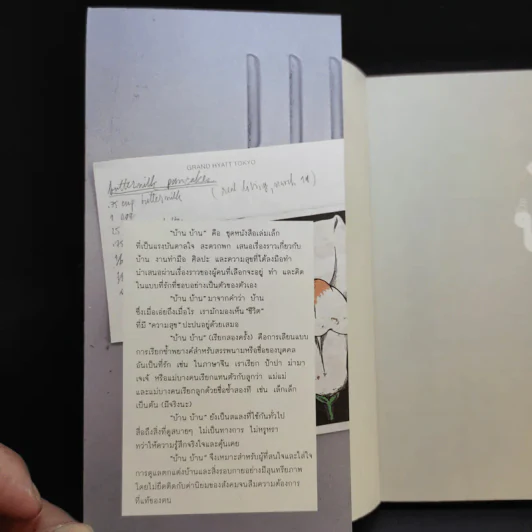 GRAND HYATT TOKYO
buttermilk pancakes
.75 cup buttermilk
"บ้าน บ้าน" คือ ชุดหนังสือเล่มเล็ก
ที่เป็นแรงบันดาลใจ สะดวกพก เสนอเรื่องราวเกี่ยวกับ
บ้าน งานทำมือ ศิลปะ และความสุขที่ได้ลงมือทำ
นำเสนอผ่านเรื่องราวของผู้คนที่เลือกจะอยู่ ทำ และคิด
ในแบบที่รักที่ชอบอย่างเป็นตัวของตัวเอง
"บ้าน บ้าน" มาจากคำว่า บ้าน
ซึ่งเมื่อเอ่ยถึงเมื่อไร เรามักมองเห็น "ชีวิต"
ที่มี "ความสุข" ปะปนอยู่ด้วยเสมอ
"บ้าน บ้าน" (เรียกสองครั้ง) คือการเลียนแบบ
การเรียกซ้ำพยางค์สำหรับสรรพนามหรือชื่อของบุคคล
อันเป็นที่รัก เช่น ในภาษาจีน เราเรียก ป๊าป๋า ม่าม้า
เจ่เจ้ หรือแม่บางคนเรียกแทนตัวกับลูกว่า แม่แม่
และแม่บางคนเรียกลูกด้วยชื่อซ้ำสองที เช่น เล็กเล็ก
เป็นต้น (มีจริงนะ)
"บ้าน บ้าน" ยังเป็นสแลงที่ใช้กันทั่วไป
สื่อถึงสิ่งที่ดูสบายๆ ไม่เป็นทางการ ไม่หรูหรา
ทว่าให้ความรู้สึกจริงใจและคุ้นเคย
"บ้าน บ้าน" จึงเหมาะสำหรับผู้ที่สนใจและใส่ใจ
การดูแลตกแต่งบ้านและสิ่งรอบกายอย่างมีสุนทรียภาพ
โดยไม่ยึดติดกับค่านิยมของสังคมจนลืมความต้องการ
ที่แท้ของตน